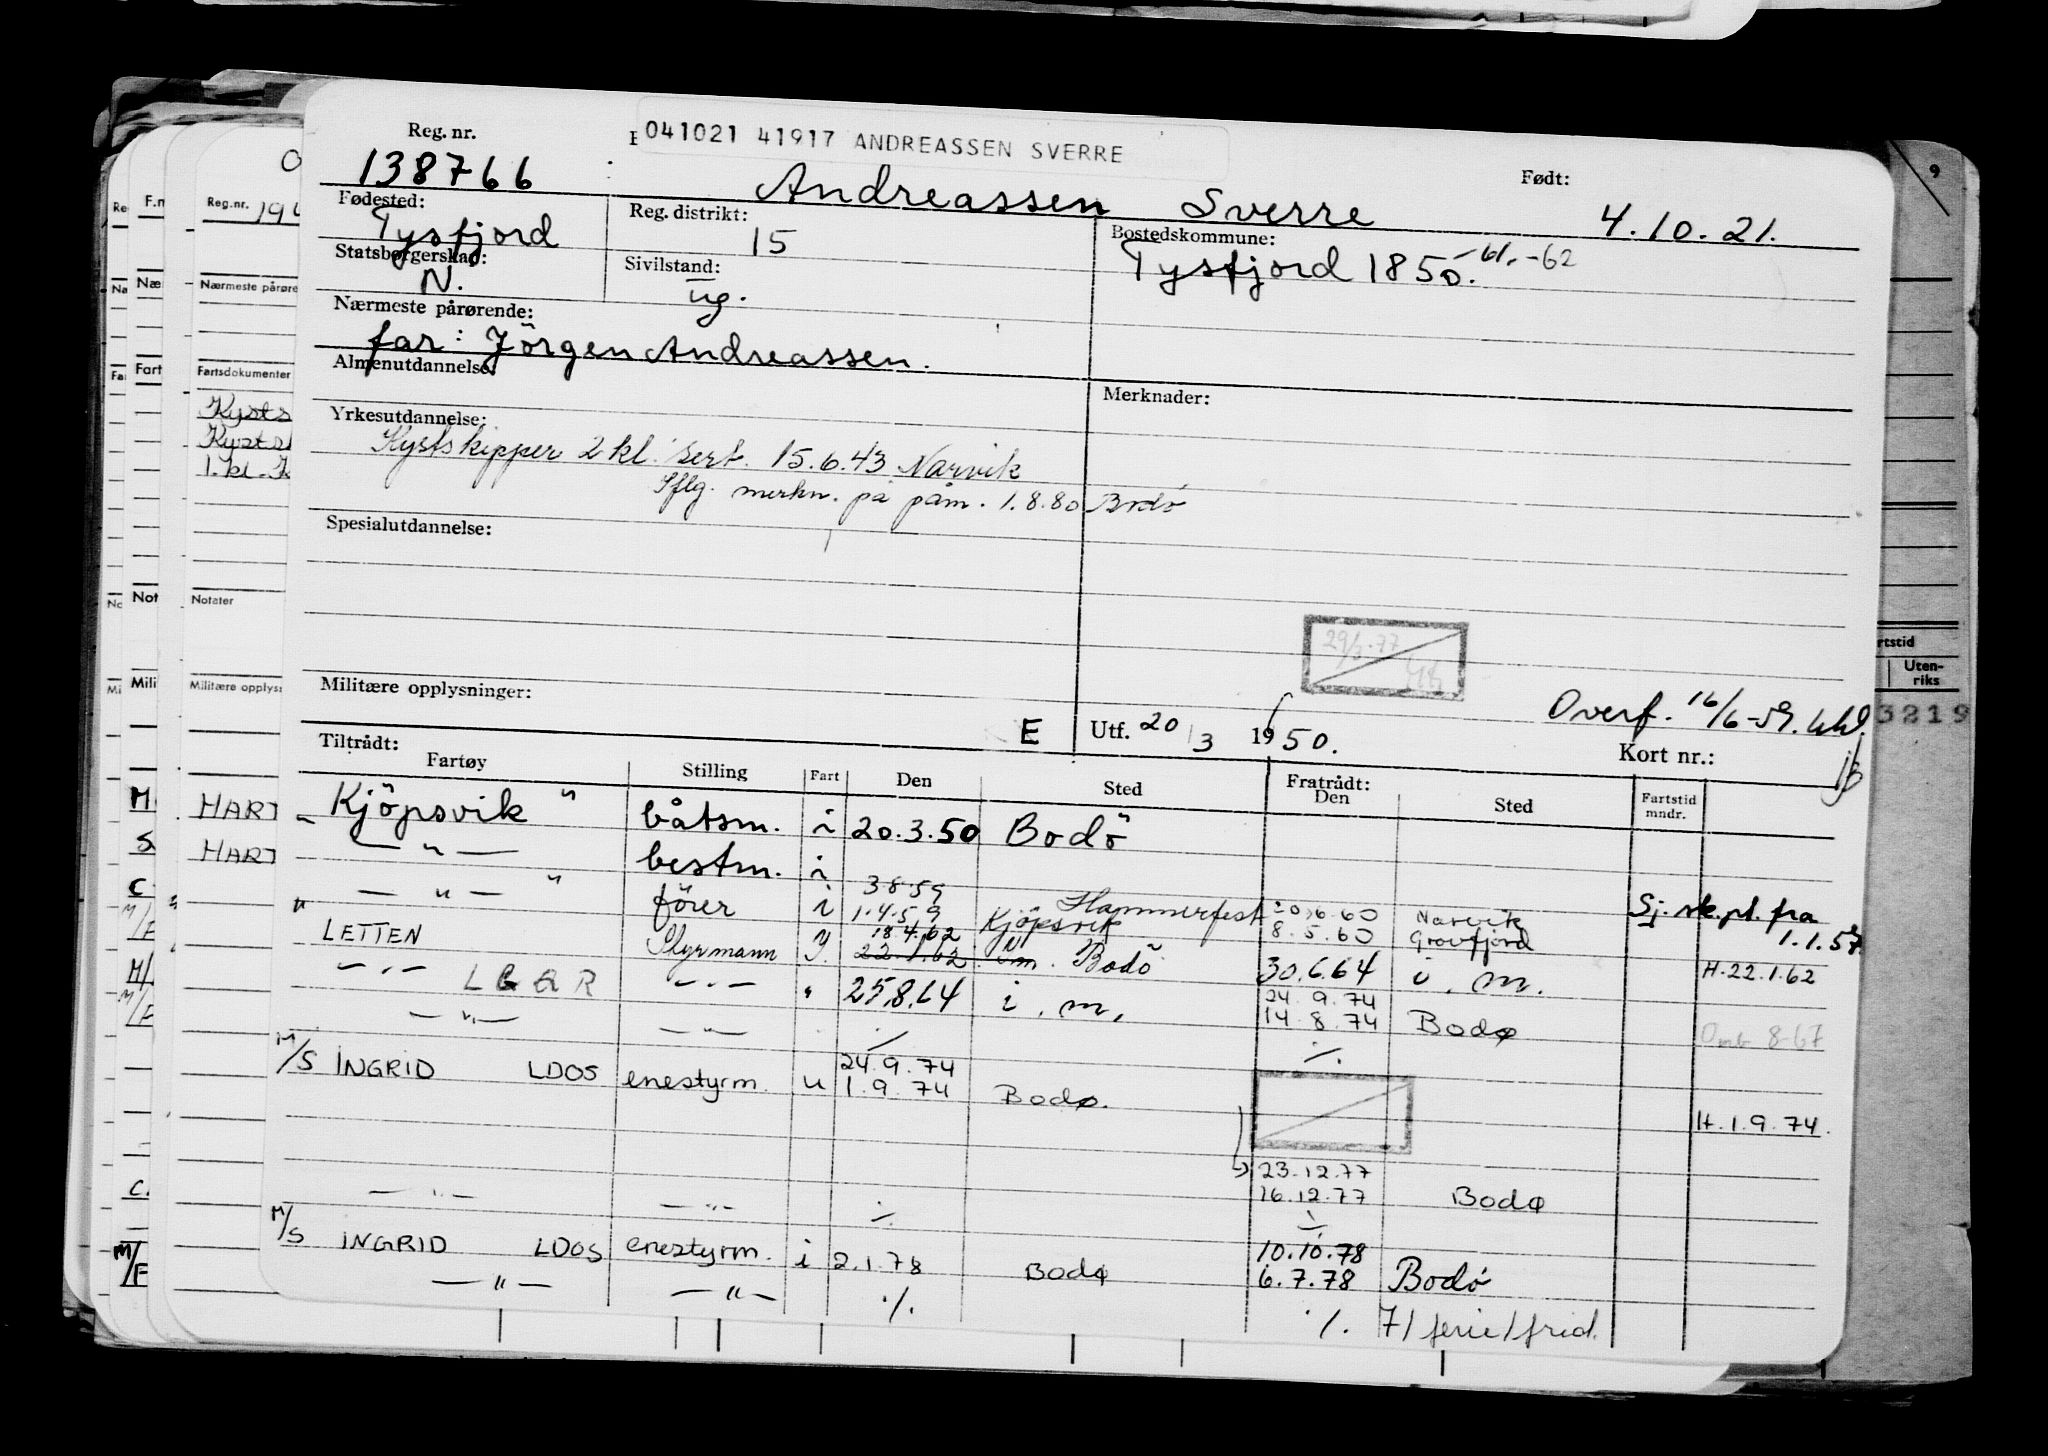 041021 41917 ANDREASSEN SVERRE
Reg. nr.
138766
Andreassen Sverre
Født:
4.10.21.
Fødested:
Tysfjord
Reg. distrikt:
15
Bostedskommune:
Tysfjord 1850. -61. -62
Statsborgerskap:
N.
Sivilstand:
ug.
Nærmeste pårørende:
far: Jörgen Andreassen.
Almenutdannelse:
Merknader:
Yrkesutdannelse:
Kystskipper 2 kl. sert. 15.6.43 Narvik
Sflg. merkn. på påm. 1.8.80 Bodö
Spesialutdannelse:
29/3-77
Militære opplysninger:
E
Utf. 20/3 1950.
Overf. 16/6-59.
Kort nr.:
Tiltrådt:
Fartøy Stilling Fart Den Sted Fratrådt: Den Sted Fartstid mndr.
Kjöpsvik " båtsm. i 20.3.50 Bodö
— " — bestm. i
— " — " förer i 3.8.59 1.4.59 Hammerfest Kjöpsvik 20.6.60 8.5.60 Narvik Grovfjord Sj. sk. pl. fra 1.1.57
LETTEN Styrmann 18.4.62 22.1.62 Bodö 30.6.64 i. m. H. 22.1.62
— " — — " — " 25.8.64 i. m. 24.9.74 14.8.74 Bodø Omb 8-67
— " — — " — ./. ./.
M/S INGRID LDOS enestyrm. u 24.9.74 1.9.74 Bodø. H. 1.9.74.
23.12.77
16.12.77 Bodø
— " — — " — ./. ./.
M/S INGRID LDOS enestyrm. i 2.1.78 Bodø 10.10.78 6.7.78 Bodö
— " — — " — ./. ./. 7/ ferie/frid.
Reg.nr. 194
Nærmeste pårøre
Fartsdokumenter
Kysts
Kysts
1. kl.
Notater
Militære opplysn
HART
HART
F.n
Næ
Fart
Not
Mili
9
rtstid
Uten-
riks
3219